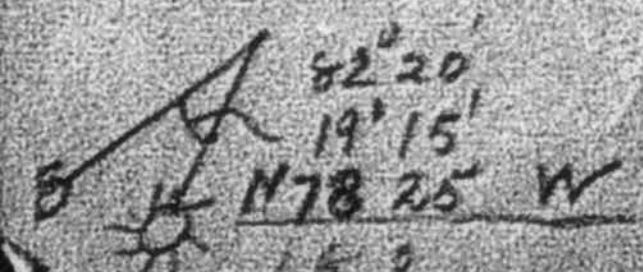 82° 20'
19° 15'
N 78 25 W